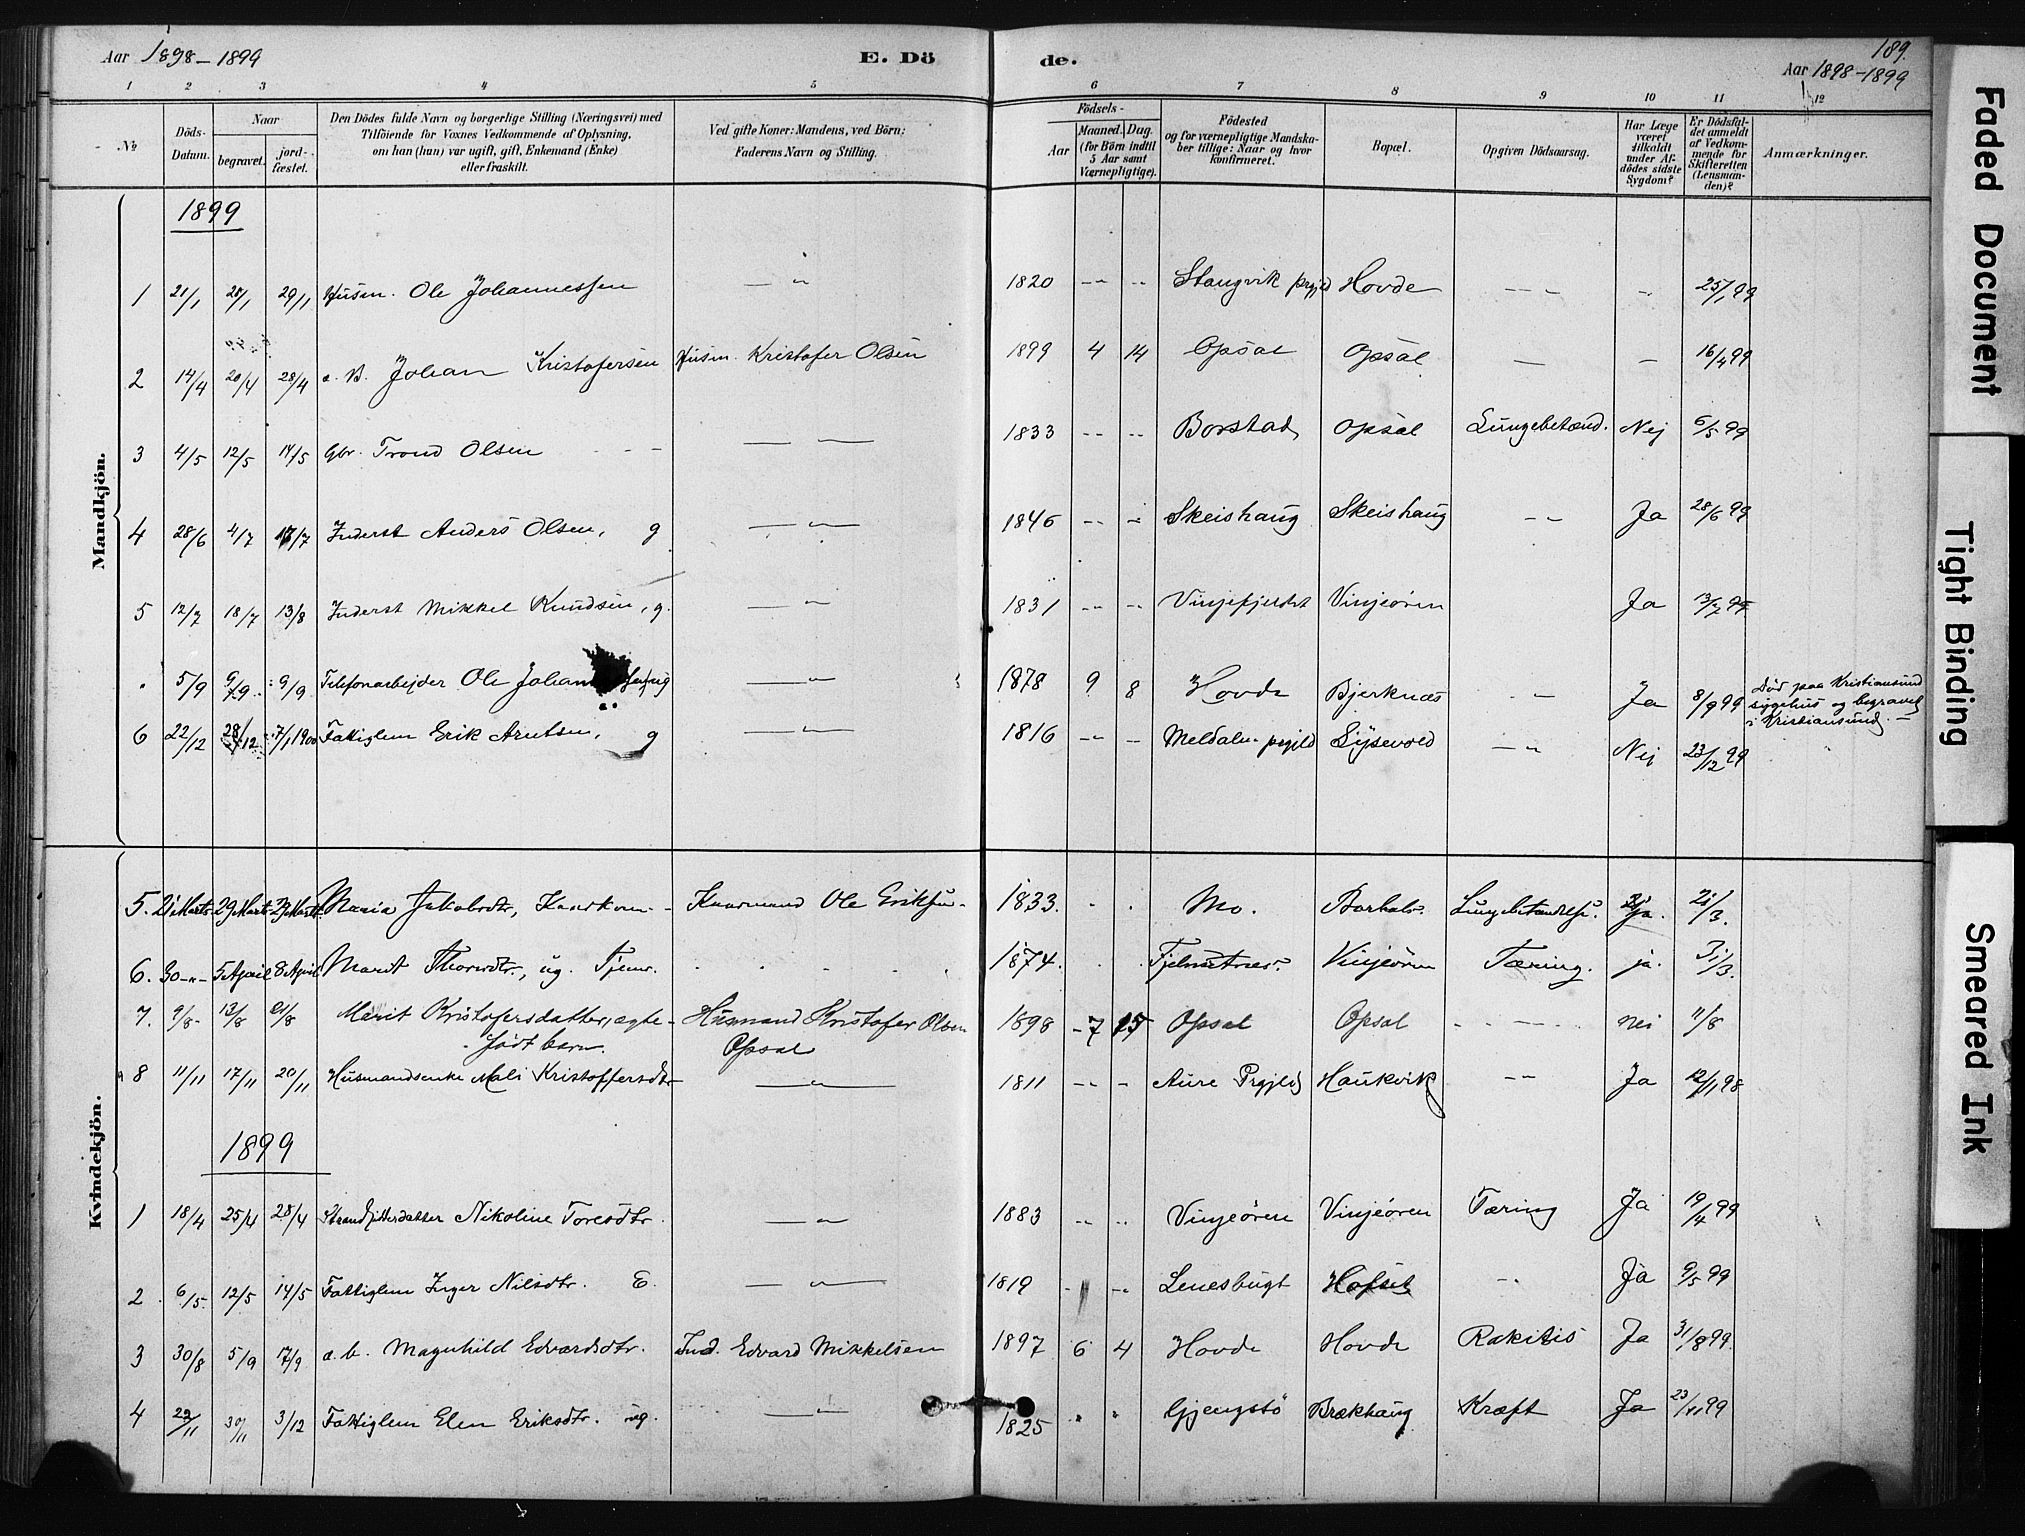 Aar 1898-1899
E. Dö
de.
189.
Aar 1898-1899
1 2 3 4 5 6 7 8 9 10 11 12
No
Döds-Datum.
Naar
begravet.
jord-fæstet.
Den Dödes fulde Navn og borgerlige Stilling (Næringsvei) med
Tilföiende for Voxnes Vedkommende af Oplysning,
om han (hun) var ugift, gift, Enkemand (Enke)
eller fraskilt.
Ved gifte Koner: Mandens, ved Börn:
Faderens Navn og Stilling.
Födsels-
Aar
Maaned. Dag.
(for Börn indtil
5 Aar samt
Værnepligtige).
Födested
og for værnepligtige Mandska-
ber tillige: Naar og hvor
konfirmeret.
Bopæl.
Opgiven Dödsaarsag.
Har Læge
været
tilkaldt
under Af-
dödes sidste
Sygdom?
Er Dödsfal-
det anmeldt
af Vedkom-
mende for
Skifteretten
(Lensman-
den)?
Anmærkninger.
Mandkjön.
1899
1 21/1 28/1 29/1 Husm. Ole Johannessen — " 1820 -- -- Stangvik prgjld Hovde -- - 25/1 99
2 14/4 20/4 28/4 e. B. Johan Kristofersen Husm. Kristofer Olsen 1899 4 14 Opsal Opsal — — 16/4 99
3 4/5 12/5 14/5 Gbr. Trond Olsen — — 1833 -- -- Borstad Opsal Lungebetænd. Nej 6/5 99
4 28/6 4/7 /7 Inderst Anders Olsen, g — " — 1846 -- -- Skeishaug Skeishaug -- Ja 28/6 99
5 12/7 18/7 13/8 Inderst Mikkel Knudsen, g. — " 1831 -- -- Vinjefjordet Vinjeören Ja 13/7 99
" 5/9 9/9 9/9 Telefonarbejder Ole ug — " — 1878 9 8 Hovde Bjerknæs -- Ja 8/9 99 Död paa Kristiansund
sygehus og begravet
i Kristiansund. —
6 22/12 28/12 7/1 1900 Fattiglem Erik Arntsen, g — " — 1816 -- -- Meldalen prgjld -- Nej 23/12 99
Kvindekjön.
5. 21 Marts 29 Marts Marts Maria Jakobsdtr, Kaarkone Kaarmand Ole Eriksen 1833. . . Mo. Lungebetændelse. ja. 21/3.
6. 30 -"- 5 April 8 April Marit ug. Tjener. 1874. . . Vinjeören Tæring. ja. 31/3.
7. 9/8 13/8 21/8 Marit Kristofersdatter, ægte- Husmand Kristofer Olsen 1898 - 7 15 Opsal Opsal -- nei 11/8
födt barn. Opsal
8 11/11 17/11 20/11 Husmandsenke Mali Kristoffersdtr — " — 1811 -- - Aure Prgjld Haukvik -- Ja 12/11 98
1899
1 18/4 25/4 28/4 Strandsitterdatter Nikoline Toresdtr. — " 1883 -- -- Vinjeören Vinjeören Tæring Ja 19/4 99
2 6/5 12/5 14/5 Fattiglem Inger Nilsdtr. E. — " — 1819 - -- Lenesbugt Hofset -- Ja 9/5 99
3 30/8 5/9 17/9 e. b. Magnhild Edvardsdtr. Ind. Edvard Mikkelsen 1897 6 4 Hovde Hovde Rakitis Ja 31/8 99.
4 22/11 30/11 3/12 Fattiglem Elen Eriksdtr. ug. — " — 1825 " " Gjengstö Brækhaug Kræft Ja 23/11 99
Faded Document
Tight Binding
Smeared Ink